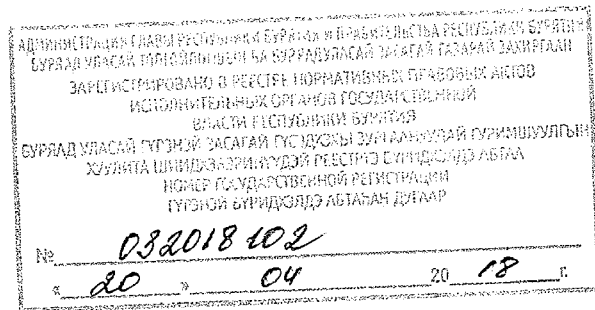 АДМИНИСТРАЦИЯ ГЛАВЫ РЕСПУБЛИКИ БУРЯТИЯ И ПРАВИТЕЛЬСТВА РЕСПУБЛИКИ БУРЯТИЯ
БУРЯАД УЛАСАЙ БА БУРЯАД УЛАСАЙ ЗАСАГАЙ ГАЗАРАЙ ЗАХИРГААН
ЗАРЕГИСТРИРОВАНО В РЕЕСТРЕ НОРМАТИВНЫХ ПРАВОВЫХ АКТОВ
ИСПОЛНИТЕЛЬНЫХ ОРГАНОВ ГОСУДАРСТВЕННОЙ
ВЛАСТИ РЕСПУБЛИКИ БУРЯТИЯ
БУРЯАД УЛАСАЙ ГҮРЭНЭЙ ЗАСАГАЙ
РЕЕСТРТЭ БҮРИДХЭЛДЭ АБТАА
НОМЕР ГОСУДАРСТВЕННОЙ РЕГИСТРАЦИИ
ГҮРЭНЭЙ БҮРИДХЭЛДЭ АБТАҺАН ДУГААР
№ 032018102
« 20 » 04 20 18 г.